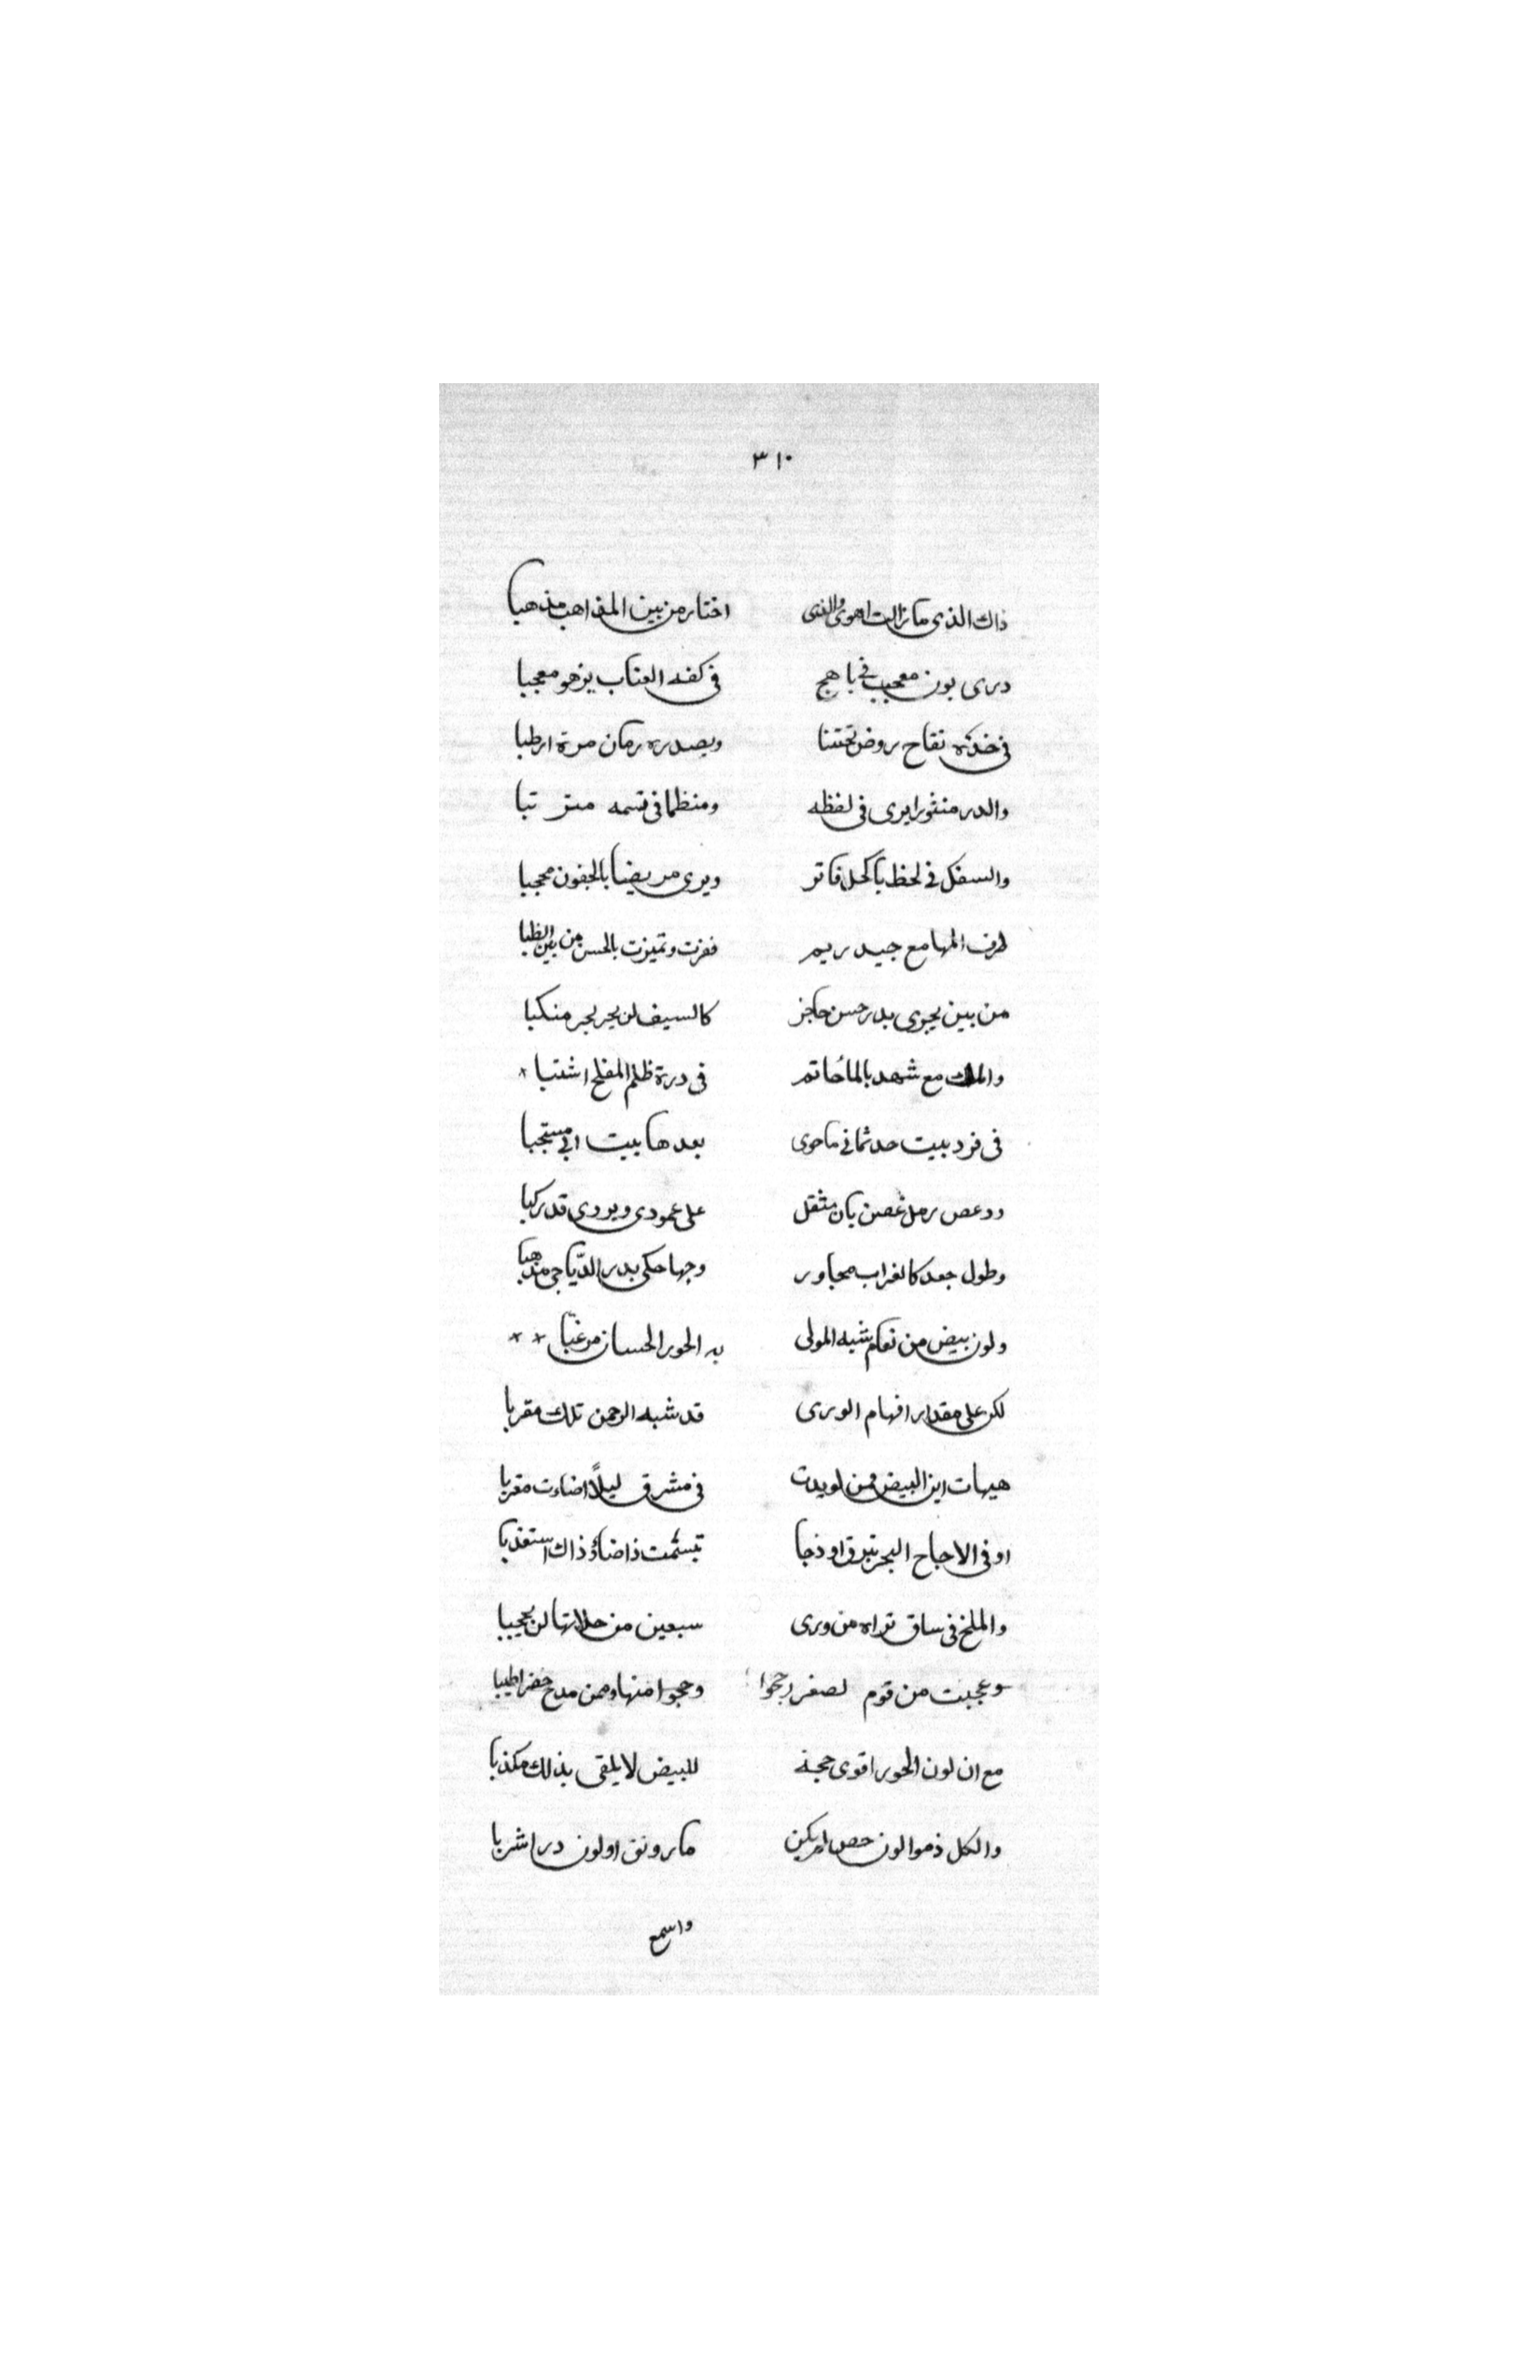 ٣١٠
ذاك الذى ما زالت اهوى والذى اختار من بين المذاهب مذهبا
درى بون معجب فى باهج فى كفه العناب يزهو معجبا
فى خده تفاح روض تحتنا وبصدره رمان مرة ارطبا
والدر منثورا يرى فى لفظه ومنظما فى تسمه مترتبا
والسفك فى لحظ باكحل فاتر ويرى مريضا بالجفون محجبا
طرف المها مع جيد ريم ففزت وتميزت بالحسن من بين الظبا
من بين يحوى بدر حسن حاجز كالسيف لن يجر منكبا
مع شهد بالما حاتم فى درة ظلم المفلج اشنبا
فى فرد بيت حد ثمانى ما حوى بعدها بيت ابى
ودعص رمل غصن بان مثقل على عمودى وبردى قد ركبا
وطول جعد كالغراب مجاور وجها حكى بدر الدّياجى مذهبا
ولون بيض من نعام شبه المولى به الحور الحسان مرغبا
لكن على مقدار افهام الورى قد شبه الرحمن تلك مقربا
هيهات اين البيض ممن لو بدت فى مشرق ليلاً اضاءت مغربا
او فى الاجاج البحر تبرق او ذجا تبسّمت ذا ضاؤ ذاك استعذبا
والملخ فى ساق تراه من ورى سبعين من حلاتها لن يحجبا
وعجبت من قوم لصفر رجحوا وحجوا منها وممن مدح خضر اطيبا
مع ان لون الحور اقوى حجة للبيض لا يلقى بذلك مكذبا
والكل ذموا لون حص لم يكن ما رونق او لون در اشربا
واسمع